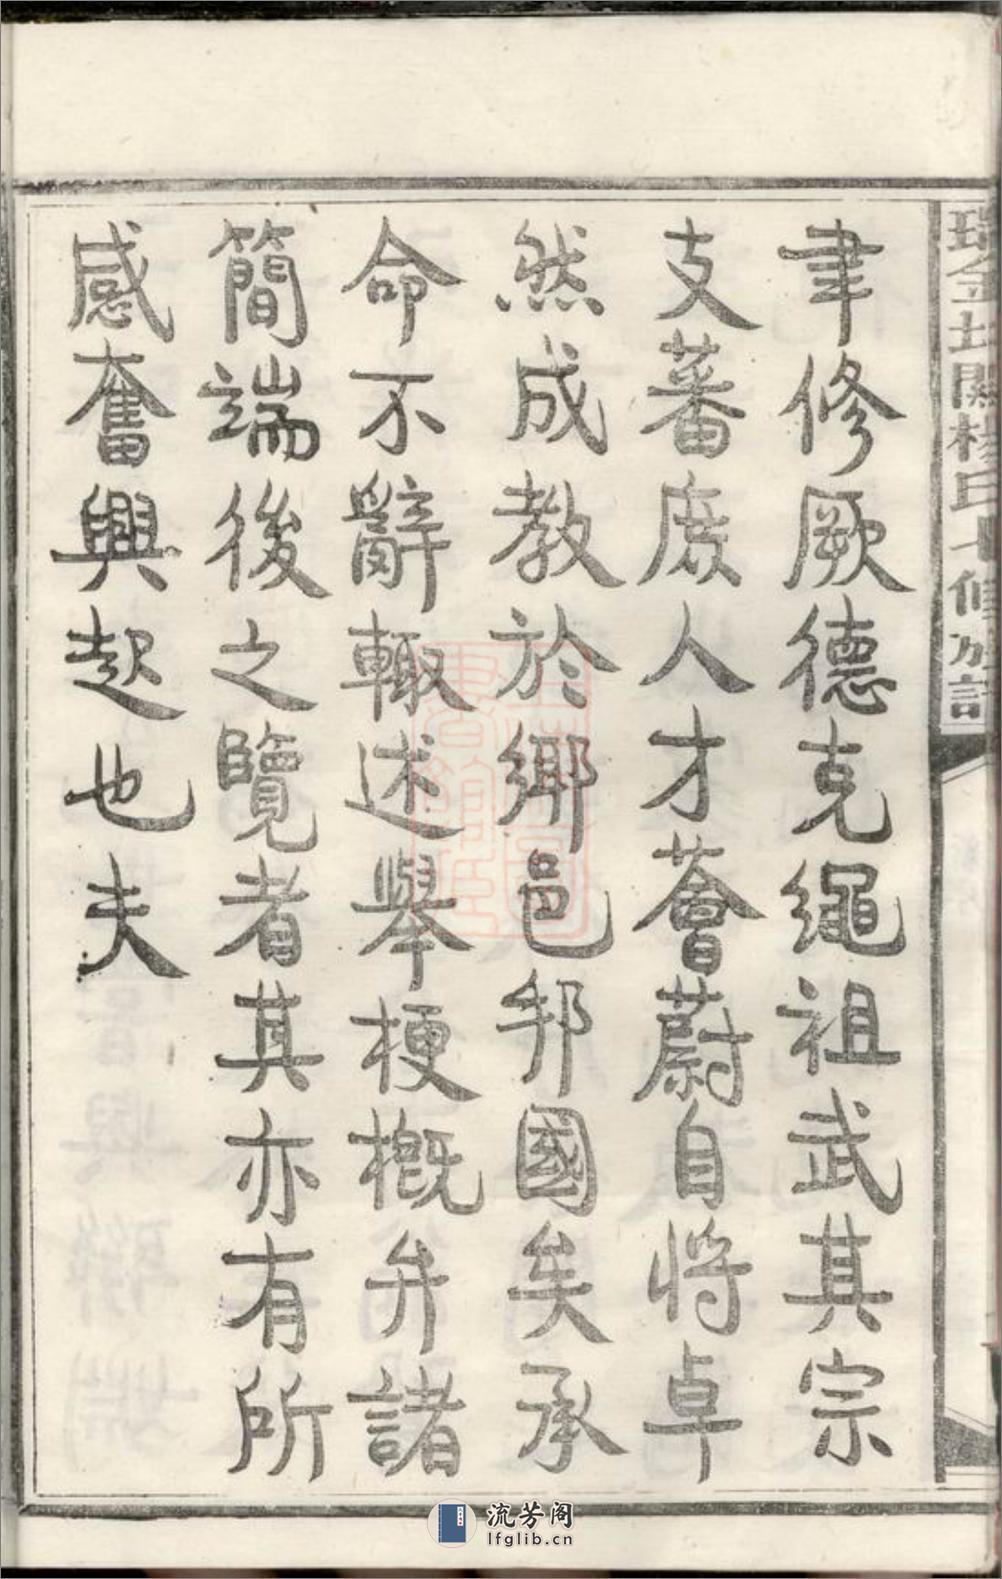 聿修厥德克繩祖武其宗
支蕃庶人才薈蔚自將卓
然成教於鄉邑邦國矣承
命不辭輙述舉梗概弁諸
簡端後之覽者其亦有所
感奮興起也夫
瑞金 關楊氏七修 
流芳阁
lfglib.cn